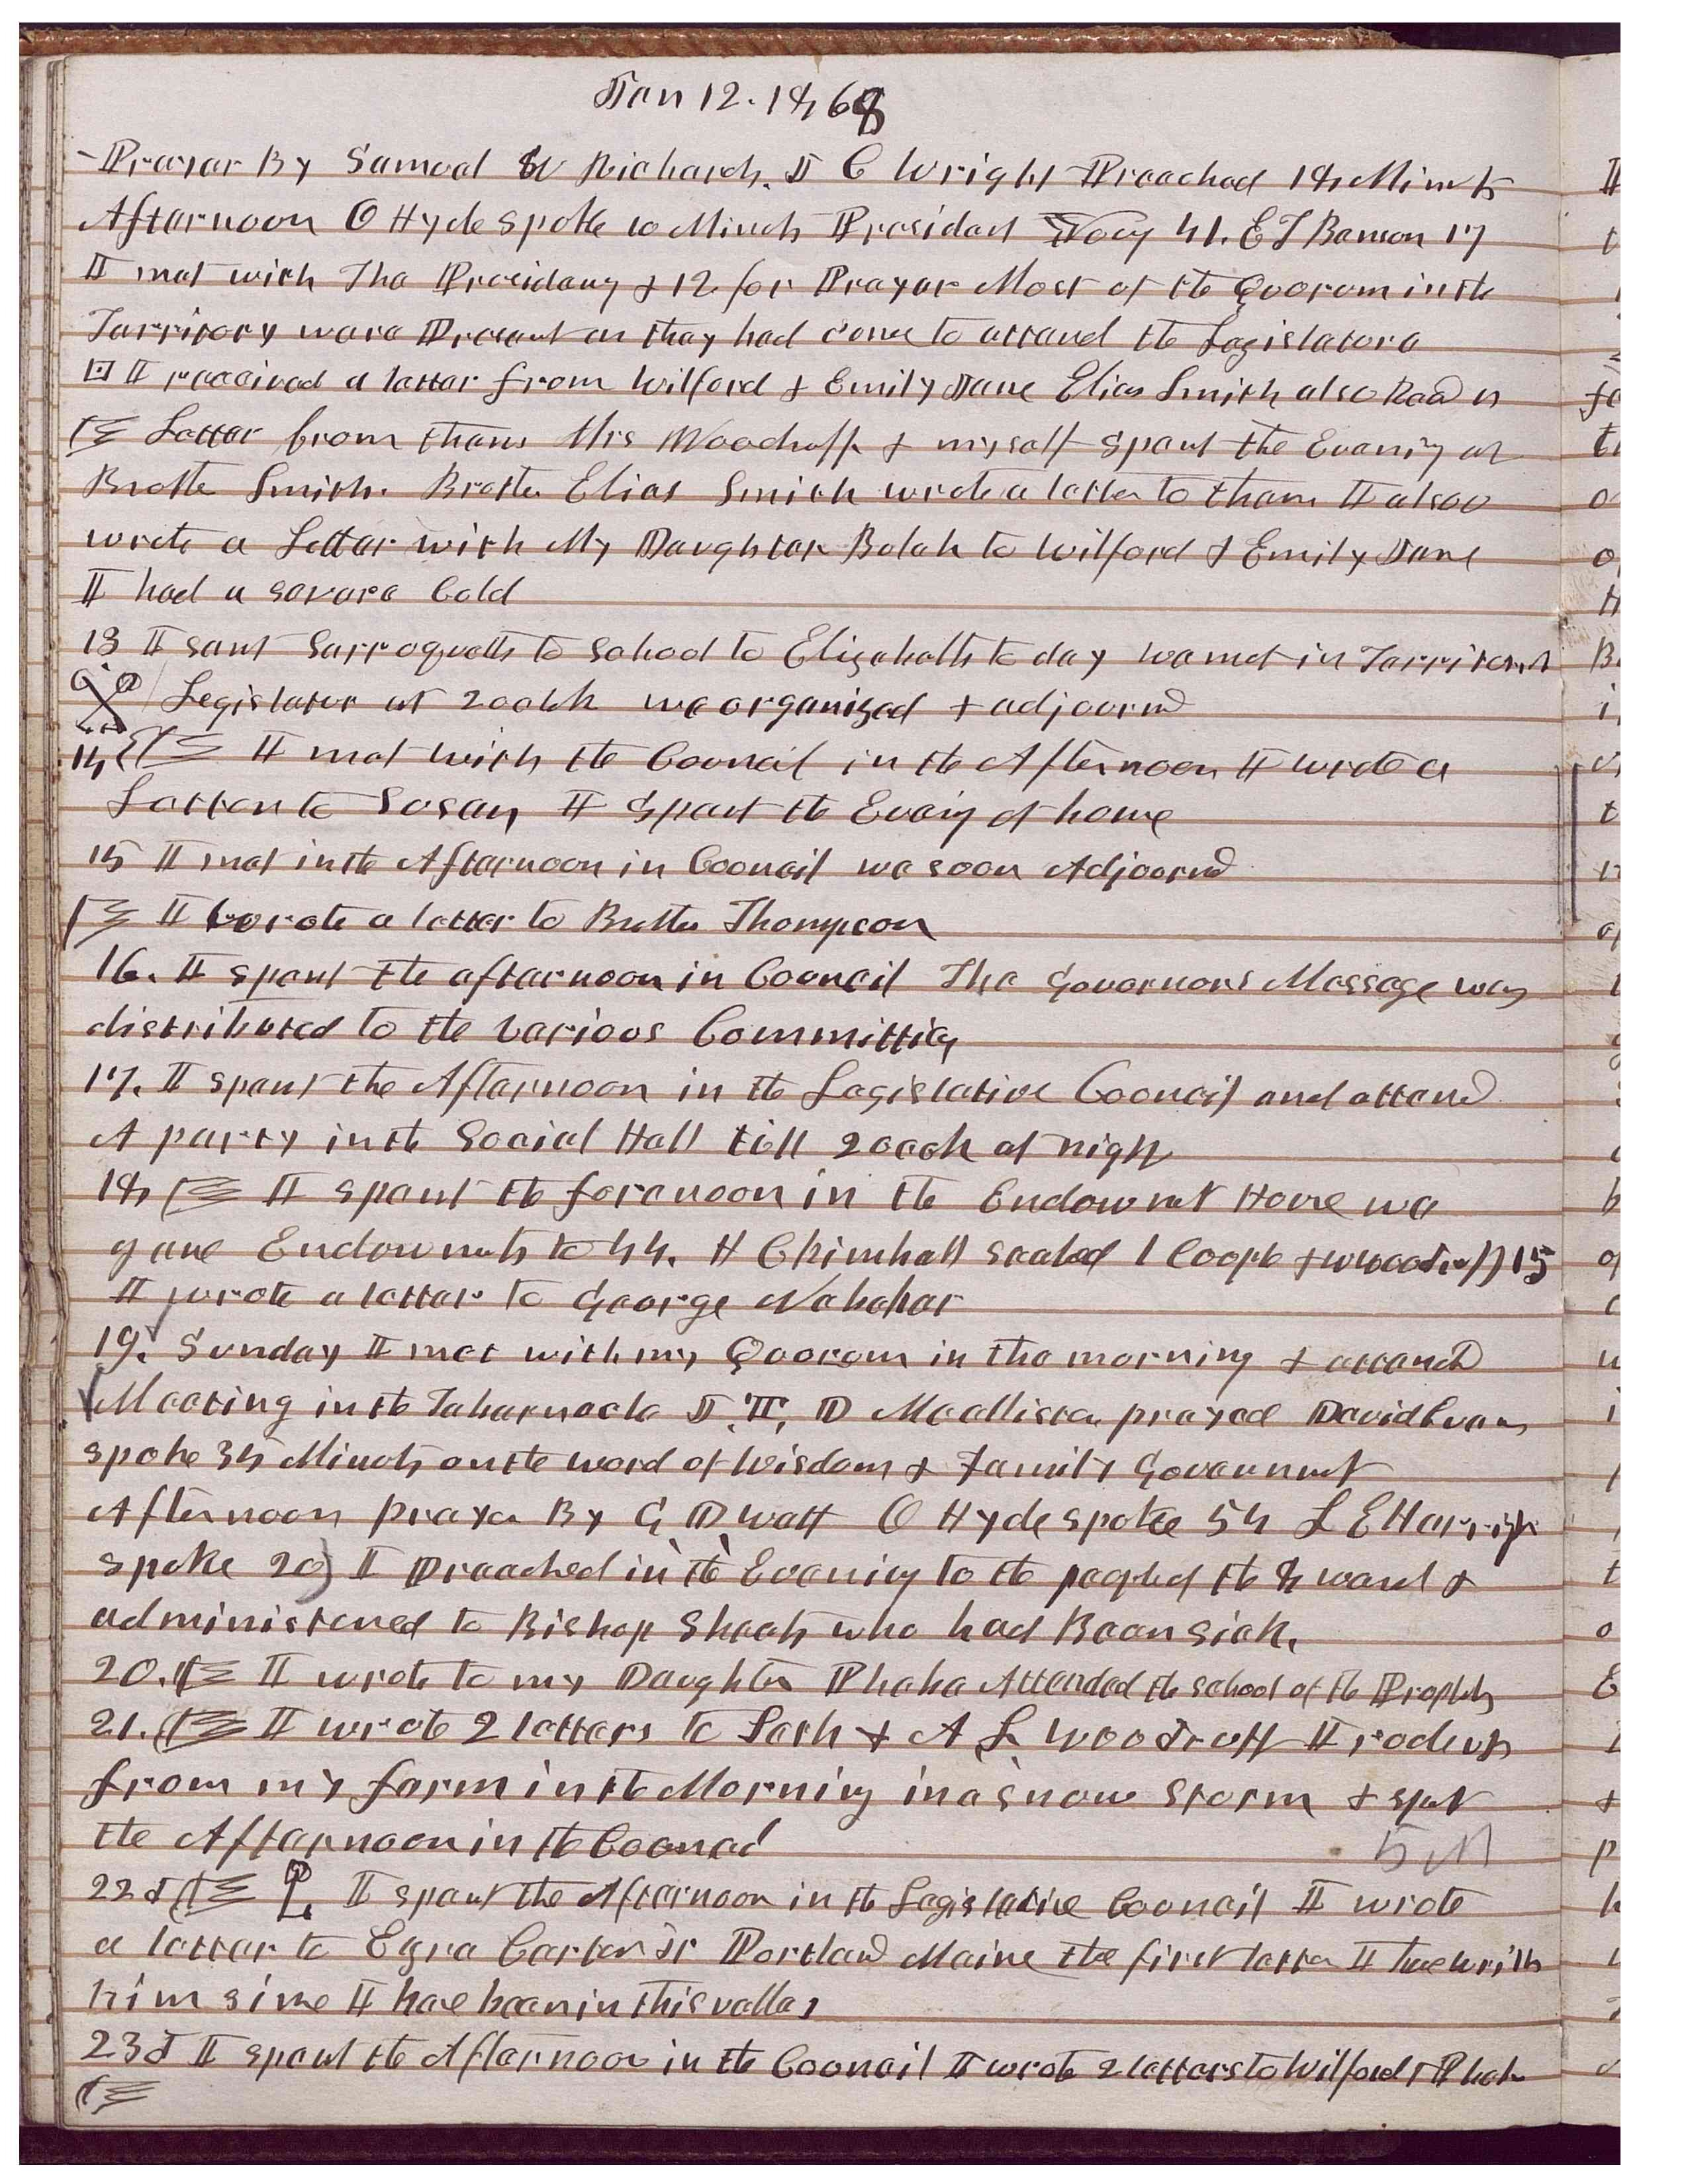 Jan 12. 1868
Prayer By Samuel W Richards. J C Wright Preached 18 Minuts
Afternoon O Hyde spoke 10 Minuts President Young 41. E T Benson 17
I met with The Presidency & 12 for Prayer Most of the Quorum in the
Territory were Present as they had come to attend the Legislature
I received a letter from Wilford & Emily Jane Elias Smith also Read a
Letter from them Mrs Woodruff & myself spent the Evening at
Brother Smith. Brother Elias Smith wrote a letter to them I also
wrote a Letter with My Daughter Bulah to Wilford & Emily Jane
I had a severe Cold
13 I sent Sarroquetts to School to Elizabeth to day we met in Territorial
Legislator at 2 oclok we organized & adjournd
14 I met with the Council in the Afternoon I wrote a
Letter to Susan I Spent the Evening at home
15 I met in the Afternoon in Council we soon Adjournd
I wrote a letter to Brother Thompson
16. I spent the afternoon in Council The Governors Message was
distributed to the various Committies
17. I spent the Afternoon in the Legislative Council and attend
A party in the Social Hall till 2 oclok at night
18 I spent the forenoon in the Endowmet House we
gave Endowments to 44. H C Kimball sealed 1 Couple & W Woodruff 15
I wrote a letter to George
19. Sunday I met with my Quorum in the morning & attend
Meeting in the Tabernacle J. T. D McAllister prayed David Evans
spoke 34 Minuts on the word of Wisdom & family Governmet
Afternoon prayer By G D Watt O Hyde spoke 54 L E Harrington
spoke 20) I Preached in the Evening to the people of the 8 ward &
administered to Bishop Sheets who had Been sick.
20. I wrote to my Daughter Phebe Attended the school of the Prophets
21. I wrote 2 letters to Seth & A L Woodruff I rode up
from my farm in the Morning in a snow storm & spet
the Afternoon in the Council
22d I spent the Afternoon in the Legislative Council I wrote
a letter to Ezra Carter Jr Portland Maine the first letter I have writn
him since I have been in this valley
23d I spent the Afternoon in the Council I wrote 2 letters to Wilford & Phebe